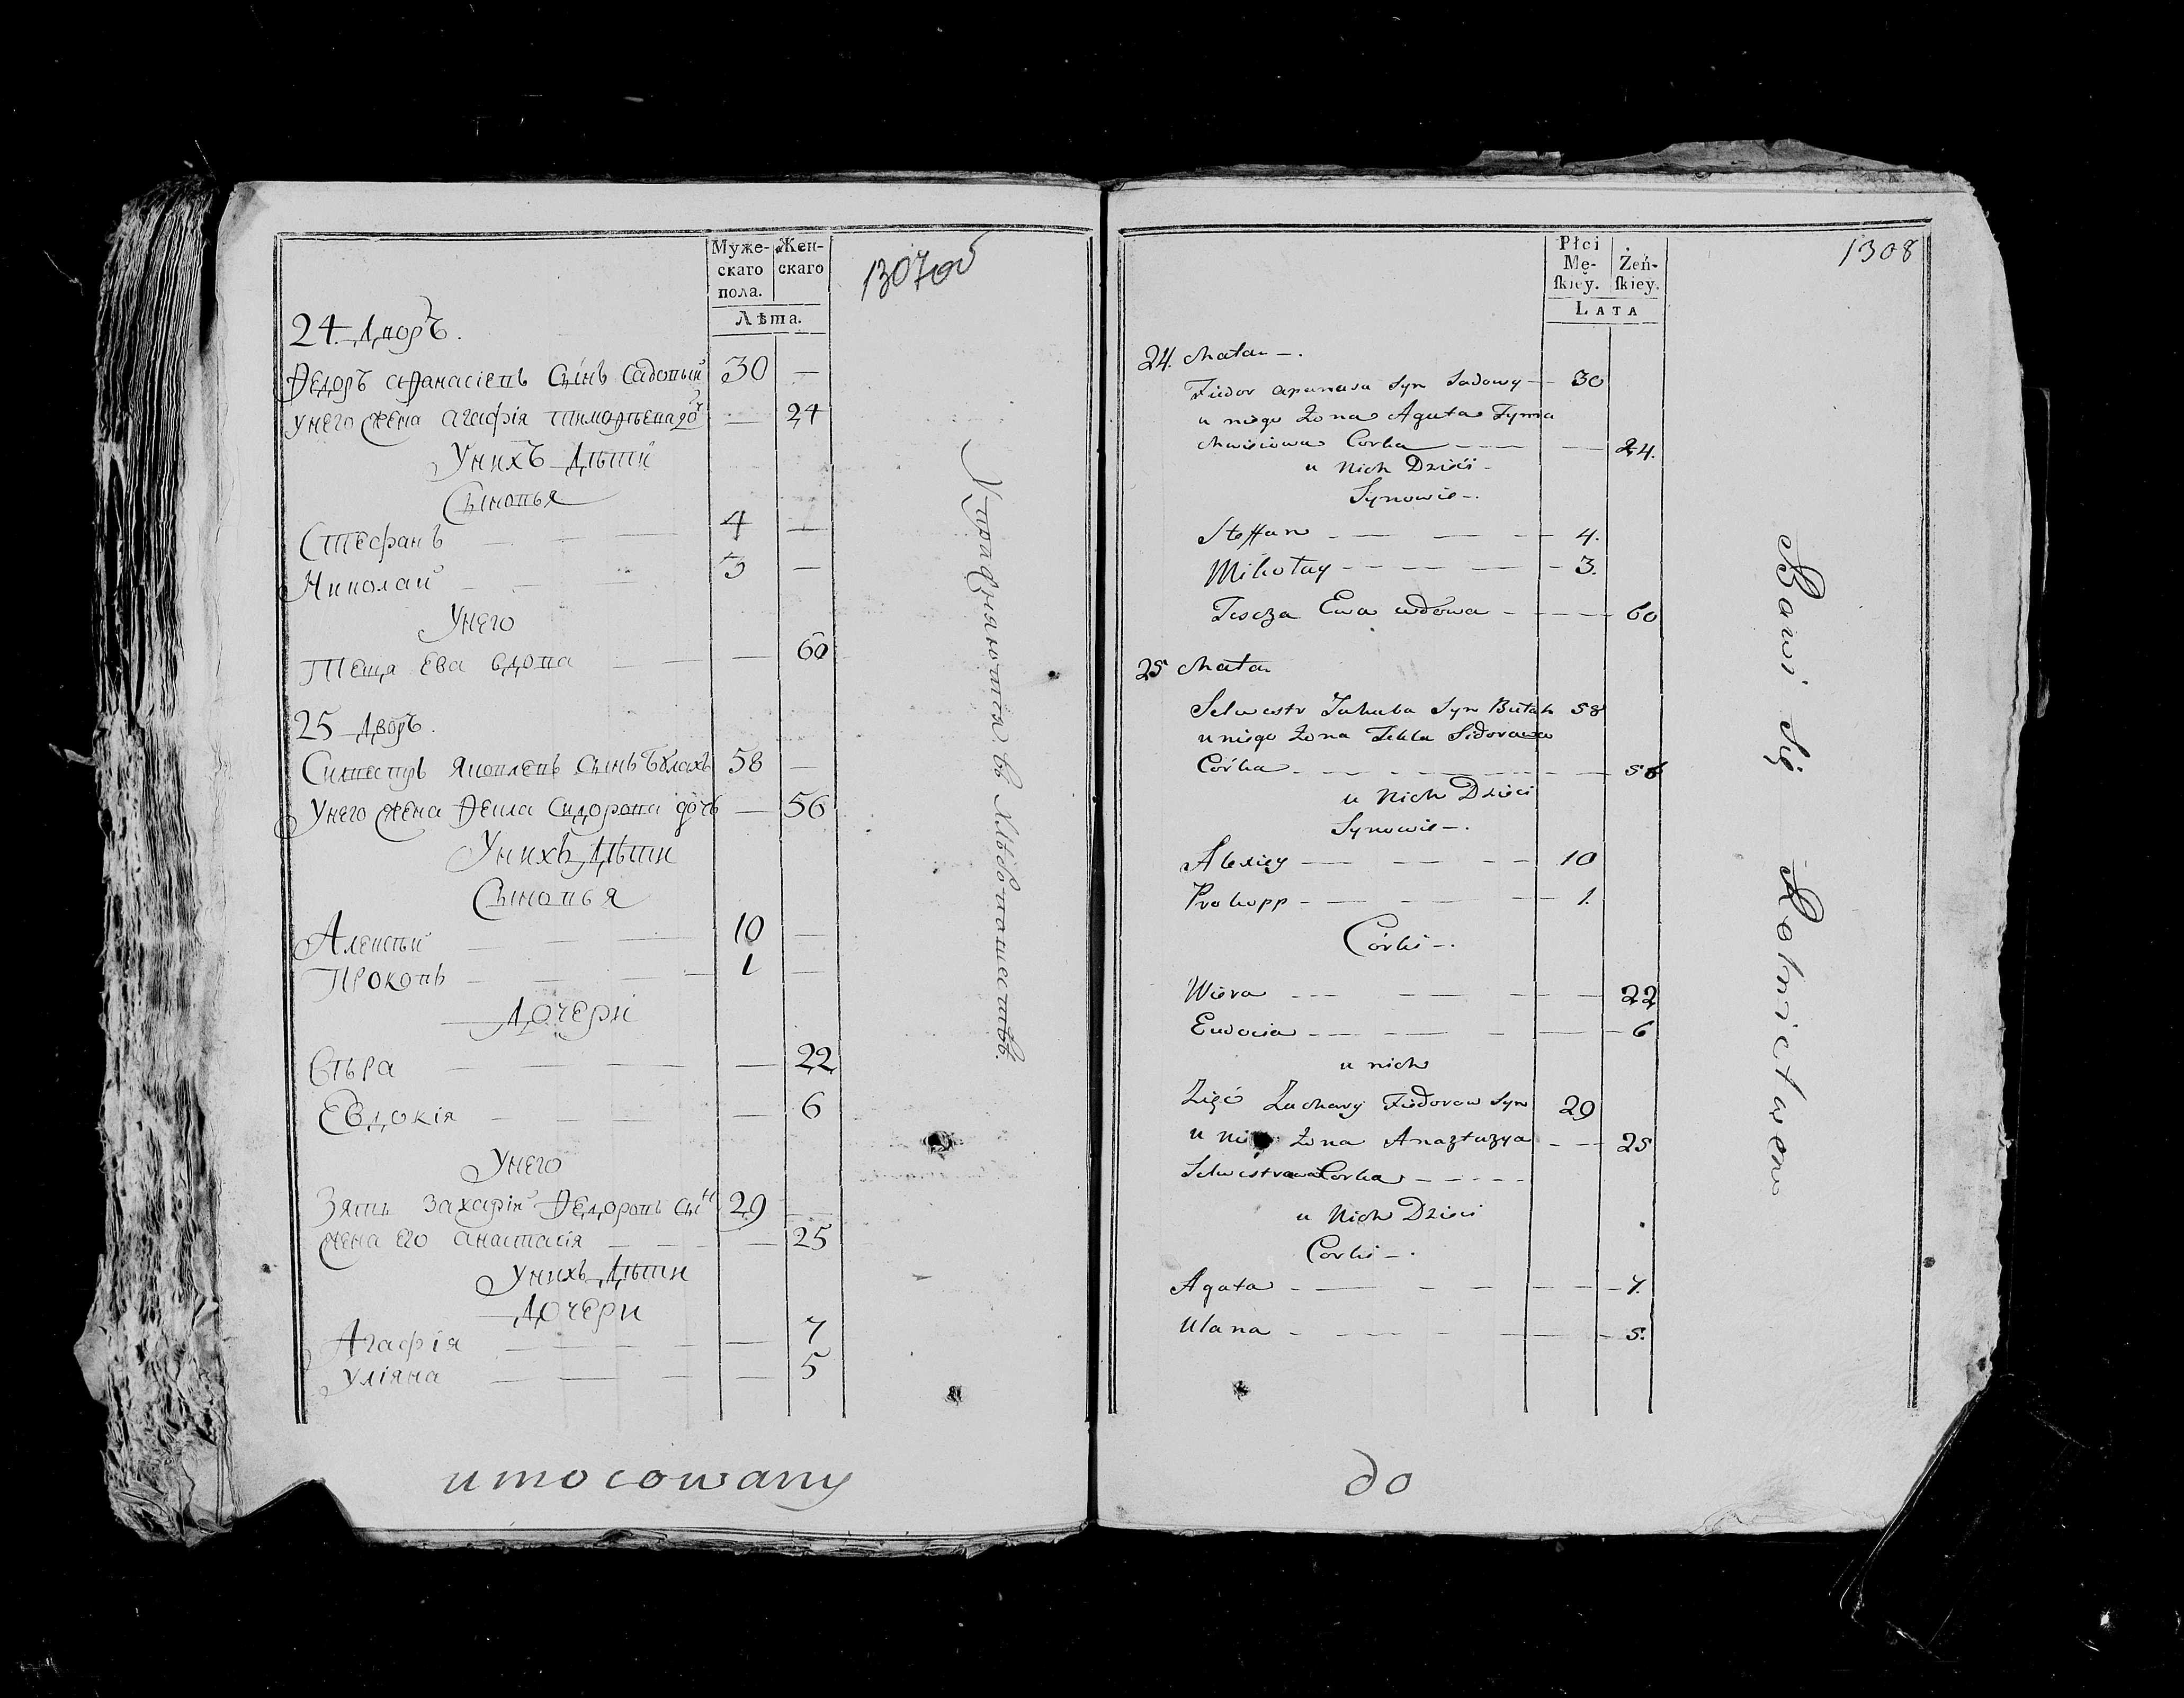 Муже-
скаго
пола.
Жен-
скаго
Лѣта.
1307об
24. Дворъ.
Ѳедоръ Афанасіевъ сынъ Садовый 30 —
У него жена Агафія Тимофѣева дочь — 24
У нихъ Дѣти
Сыновья
Стефанъ — — — 4 —
Николай — — 3 —
У него
Теща Ева вдова — — — 60
25 Дворъ.
Сильвестръ Яковлевъ сынъ Булахъ 58 —
У него жена Ѳекла Сидорова дочь — 56
У нихъ Дѣти
Сыновья
Алексѣй — — — 10 —
Прокопъ — — — 1 —
Дочери
Вѣра — — — — — 22
Евдокія — — — — 6
У него
Зять Захарій Ѳедоровъ сын 29 —
жена его Анастасія — — — 25
У нихъ Дѣти
Дочери
Агафія — — — — 7
Уліяна — — — — 5
Упражняются въ хлѣбопашествѣ.
umocowany
Płci
Mę-
ſkiey.
Żeń-
ſkiey.
LATA
1308
24. Chata —.
Fiedor Apanasa Syn Sadowy — 30
u niego Żona Agata Tymo
chwieiowa Corka — — — 24.
u Nich Dzieci —
Synowie —.
Steffan — — — — 4.
Mikołay — — — — 3.
Tescza Ewa wdowa — — — 60
25 Chata
Selwestr Jakuba Syn Bułah 58
u niego Żona Tekla Sidorowa
Córka — — — — — 56
u Nich Dzieci
Synowie —.
Alexiey — — — — 10
Prokopp — — — — 1.
Córki —.
Wiera — — — — 22
Eudocia — — — — 6
u nich
Zięć Zachary Fiedorow Syn 29
u Nie Żona Anaztazya — — 25
Selwestrowa Corka — — — —
u Nich Dzieci
Corki —.
Agata — — — — — 7.
Ulana — — — — — 5.
Bawi się Rolnictwem
do